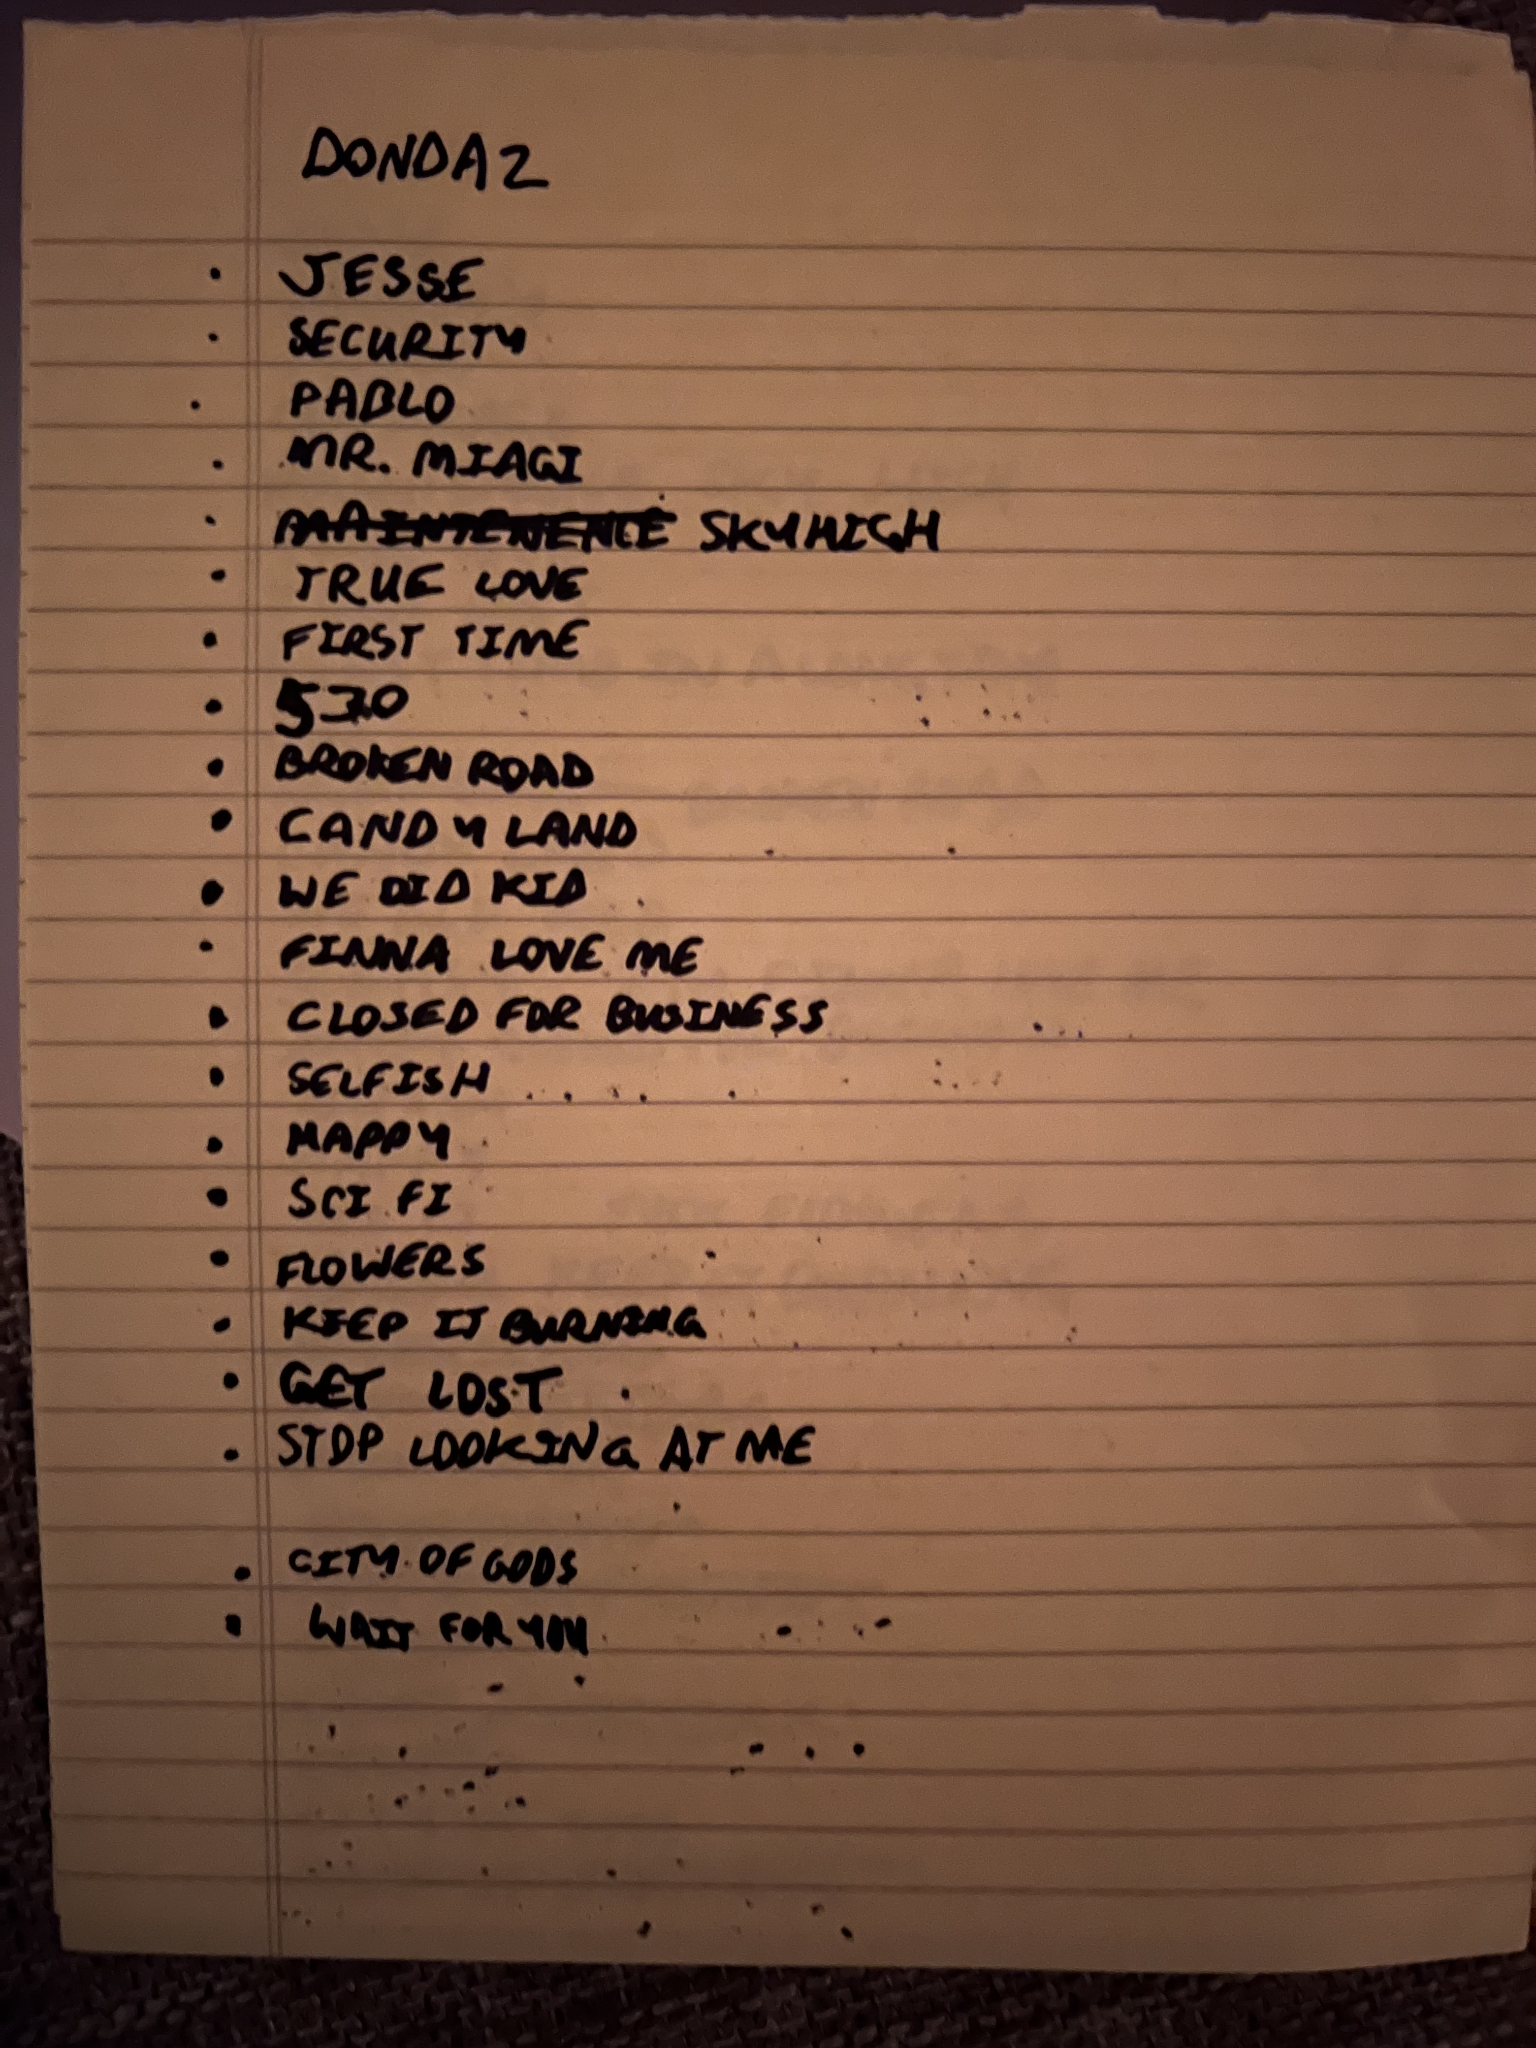 DONDA 2
• JESSE
• SECURITY
• PABLO
• MR. MIAGI
• MAINTENENCE SKYHIGH
• TRUE LOVE
• FIRST TIME
• 530
• BROKEN ROAD
• CANDY LAND
• WE DID KID
• FINNA LOVE ME
• CLOSED FOR BUSINESS
• SELFISH
• HAPPY
• SCI FI
• FLOWERS
• KEEP IT BURNING
• GET LOST
• STOP LOOKING AT ME
• CITY OF GODS
• WAIT FOR YOU